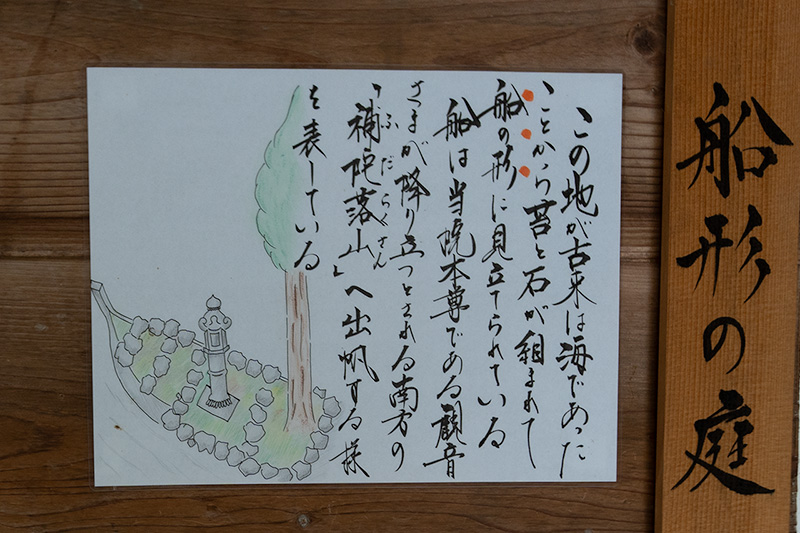 船形の庭
この地が古来は海であった
ことから苔と石が組まれて
船の形に見立てられている
船は当院本尊である観音
さまが降り立つとされる南方の
「補陀落山」へ出帆する様
ふだらくさん
を表している